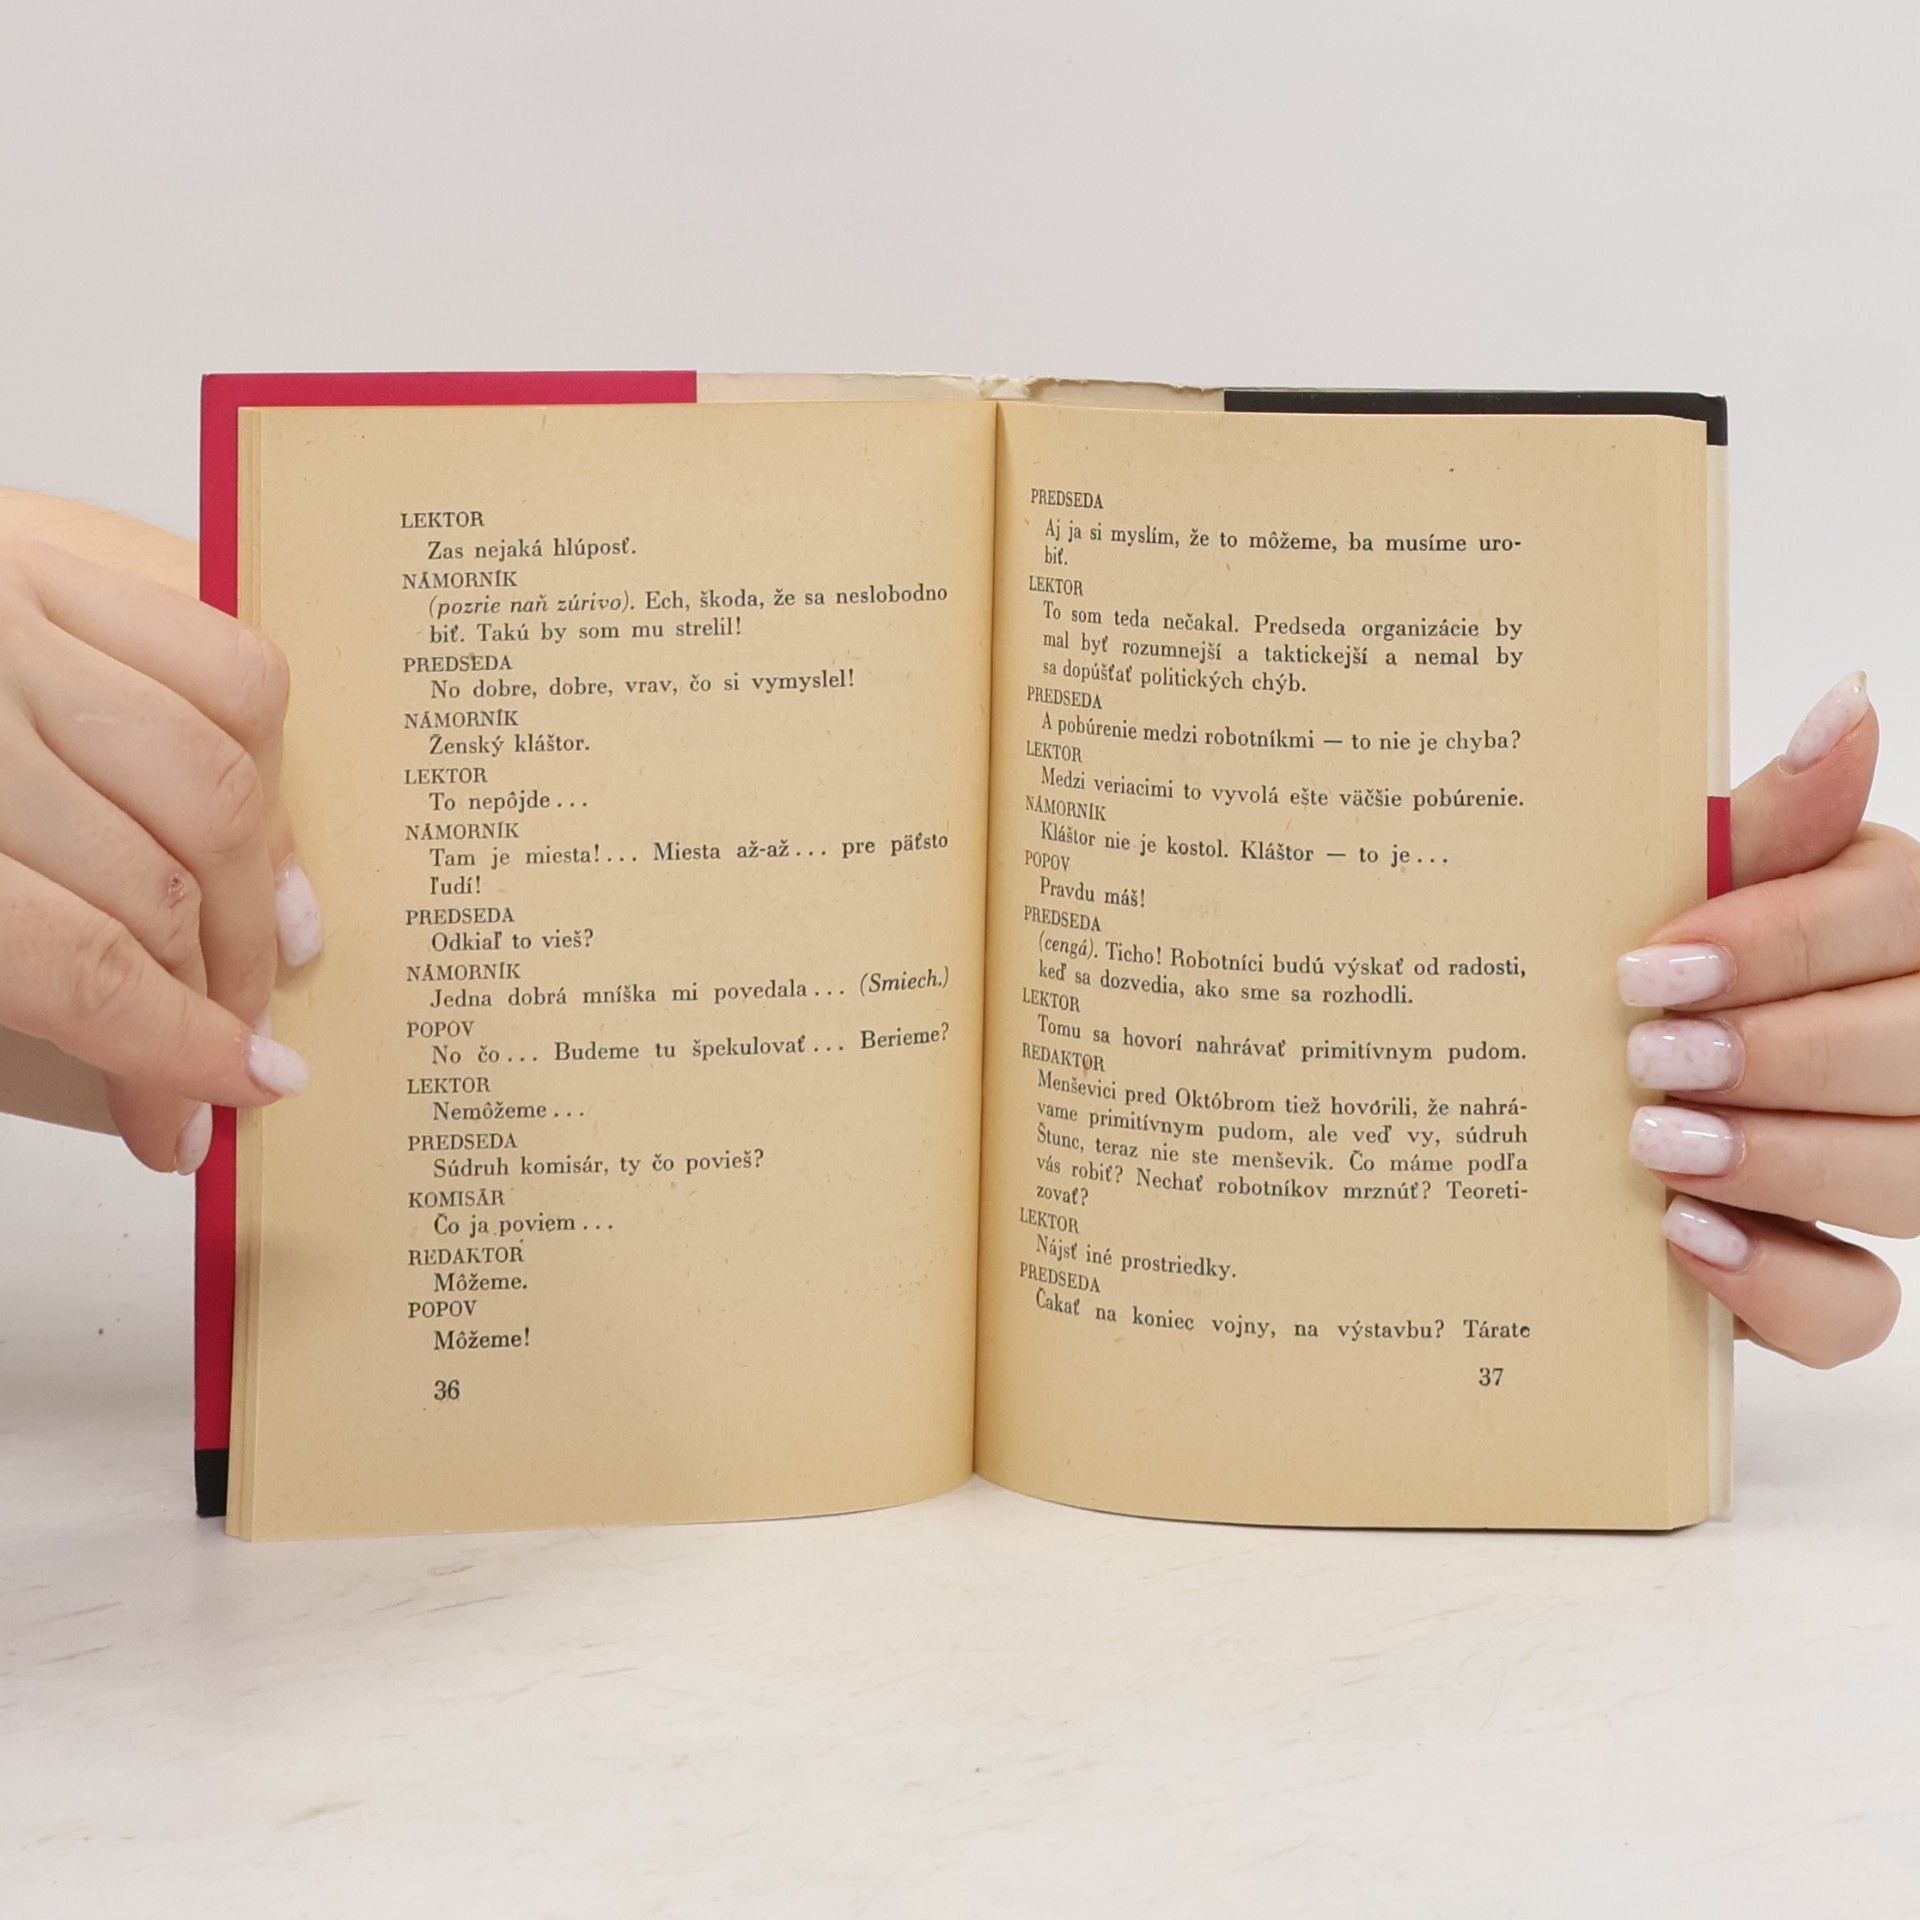 LEKTOR
Zas nejaká hlúposť.
NÁMORNÍK
(pozrie naň zúrivo). Ech, škoda, že sa neslobodno
biť. Takú by som mu strelil!
PREDSEDA
No dobre, dobre, vrav, čo si vymyslel!
NÁMORNÍK
Ženský kláštor.
LEKTOR
To nepôjde...
NÁMORNÍK
Tam je miesta!... Miesta až-až... pre päťsto
ľudí!
PREDSEDA
Odkiaľ to vieš?
NÁMORNÍK
Jedna dobrá mníška mi povedala... (Smiech.)
POPOV
No čo... Budeme tu špekulovať... Berieme?
LEKTOR
Nemôžeme...
PREDSEDA
Súdruh komisár, ty čo povieš?
KOMISÁR
Čo ja poviem...
REDAKTOR
Môžeme.
POPOV
Môžeme!
36
PREDSEDA
Aj ja si myslím, že to môžeme, ba musíme uro-
biť.
LEKTOR
To som teda nečakal. Predseda organizácie by
mal byť rozumnejší a taktickejší a nemal by
sa dopúšťať politických chýb.
PREDSEDA
A pobúrenie medzi robotníkmi — to nie je chyba?
LEKTOR
Medzi veriacimi to vyvolá ešte väčšie pobúrenie.
NÁMORNÍK
Kláštor nie je kostol. Kláštor — to je...
POPOV
Pravdu máš!
PREDSEDA
(cengá). Ticho! Robotníci budú výskať od radosti,
keď sa dozvedia, ako sme sa rozhodli.
LEKTOR
Tomu sa hovorí nahrávať primitívnym pudom.
REDAKTOR
Menševici pred Októbrom tiež hovorili, že nahrá-
vame primitívnym pudom, ale veď vy, súdruh
Štunc, teraz nie ste menševik. Čo máme podľa
vás robiť? Nechať robotníkov mrznúť? Teoreti-
zovať?
LEKTOR
Nájsť iné prostriedky.
PREDSEDA
Čakať na koniec vojny, na výstavbu? Tárate
37